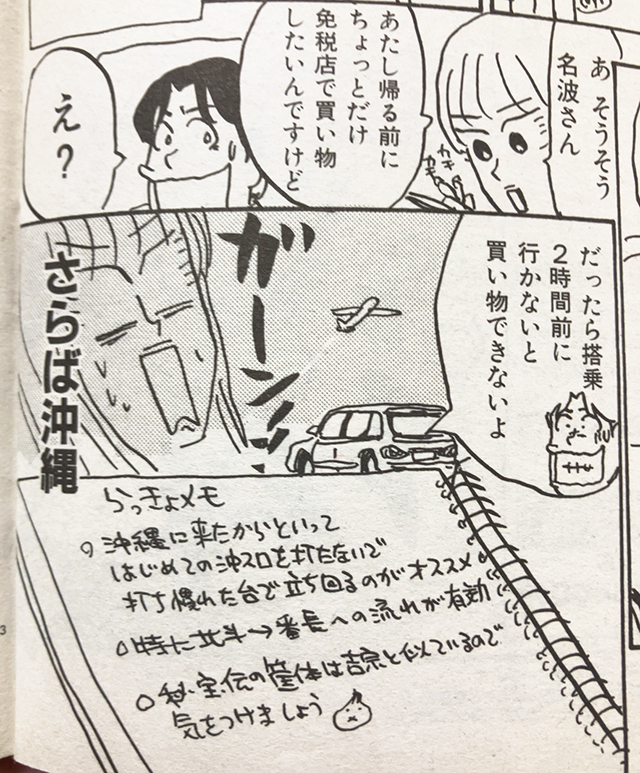 あ そうそう
名波さん
あたし帰る前に
ちょっとだけ
免税店で買い物
したいんですけど
カキ
カキ
え?
だったら搭乗
2時間前に
行かないと
買い物できないよ
ガーンッ
さらば沖縄
らっきょメモ
○ 沖縄に来たからといって
はじめての沖スロを打たないで
打ち慣れた台で立ち回るのがオススメ
○ 特に北斗→番長への流れが有効
○ 秘宝伝の筐体は吉宗と似ているので
気をつけましょう
3